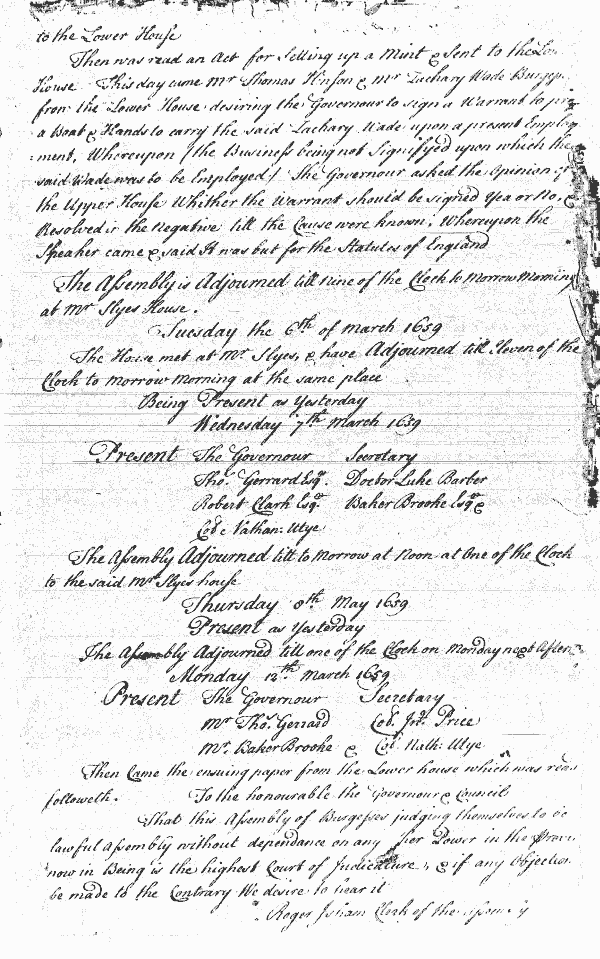 to the Lower House
Then was read an Act for Setting up a Mint & Sent to the Low
House This day came Mr Thomas Hinson & Mr Zachary Wade Burgess
from the Lower House desiring the Governour to sign a Warrant to pr
a Boat & Hands to carry the said Zachary Wade upon a present Employ
ment, Whereupon (the Business being not Signifyed upon which the
said Wade was to be Employed) The Governour asked the Opinion of
the Upper House Whither the Warrant should be signed Yea or No, &
Resolved in the Negative till the Cause were known. Whereupon the
Speaker came & said It was but for the Statutes of England
The Assembly is Adjourned till nine of the Clock to Morrow Morning
at Mr Slyes House.
Tuesday the 6th of March 1659
The House met at Mr Slyes, & have Adjourned till Eleven of the
Clock to morrow Morning at the same place
Being Present as Yesterday
Wednesday 7th March 1659
Present The Governour Secretary
Tho: Gerrard Esqr. Doctor Luke Barber
Robert Clark Esqr Baker Brooke Esqr &
Col: Nathan: Utye
The Assembly Adjourned till to Morrow at Noon at One of the Clock
to the said Mr Slyes house
Thursday 8th May 1659
Present as Yesterday
The Assembly Adjourned till one of the Clock on Monday next After
Monday 12th March 1659
Present The Governour Secretary
Mr Tho: Gerrard Col. Jno. Price
Mr. Baker Brooke & Col. Nath: Utye
Then Came the ensuing paper from the Lower house which was read
followeth. To the honourable the Governour & Council
That this Assembly of Burgesses judging themselves to be
lawful Assembly without dependance on any Power in the Provin
now in Being is the highest Court of Judicature, & if any Objection
be made to the Contrary We desire to hear it
Roger Isham Clerk of the Assembly